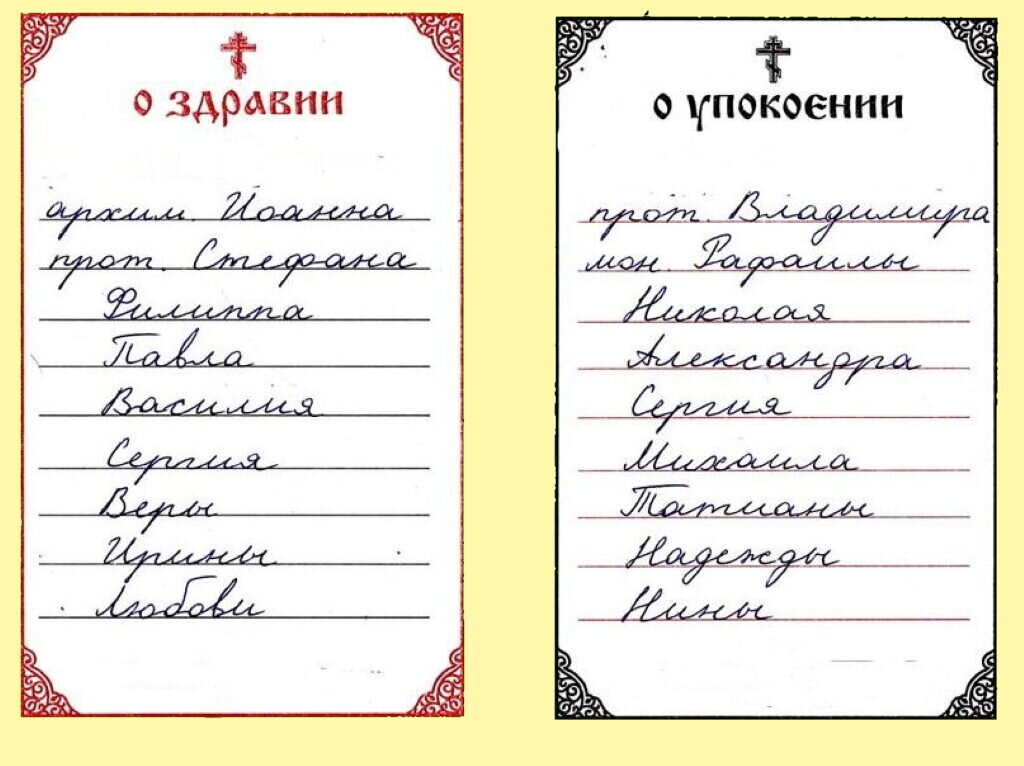 О ЗДРАВИИ
архим. Иоанна
прот. Стефана
Филиппа
Павла
Василия
Сергия
Веры
Ирины
Любови
О УПОКОЄНИИ
прот. Владимира
мон. Рафаилы
Николая
Александра
Сергия
Михаила
Татианы
Надежды
Нины